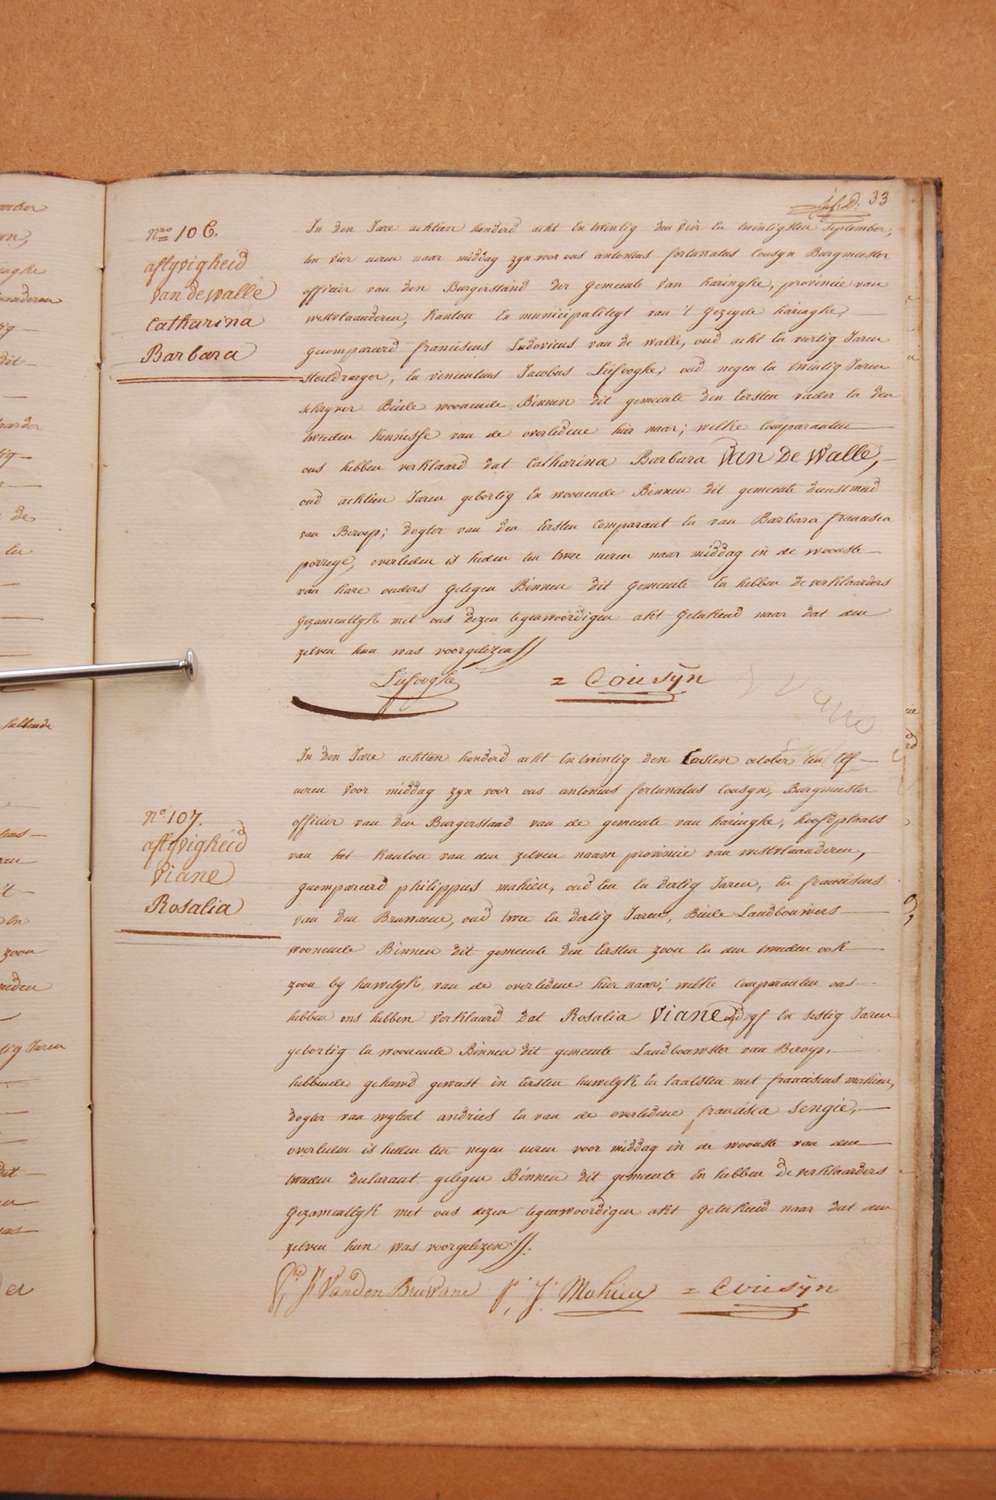 33
Nro 106.
aflyvigheid
Van de Walle
Catharina
Barbara
In den Jare achtien honderd acht en twintig den vier en twintigsten September,
ten vier uren naar middag zyn voor ons antonius fortunatus Cousyn Burgmeester
officier van den Burgerstand der gemeente van haringhe, provincie van
westvlaanderen, kanton en municipaliteyt van 't gezeyde haringhe,
gecompareerd franciscus Ludovicus van de walle, oud acht en veertig Jaren
, en vincentius Jacobus Lefooghe, oud negen en twintig Jaren
schryver Beide woonende Binnen dit gemeente den Eersten vader en den
tweeden kennisse van de overledene hier naar; welke comparanten
ons hebben verklaard dat Catharina Barbara Van De Walle,
oud achtien Jaren gebortig en woonende Binnen dit gemeente dienstmeid
van Beroep; dogter van den Eersten Comparant en van Barbara francisca
, overleden is heden ten twee uren naar middag in de wooste
van hare ouders gelegen Binnen dit gemeente en hebben de verklaarders
gezamentlyk met ons dezen tegenwoordigen akt geteekend naar dat den
zelven hun was voorgelezen //
Lefooghe = Cousyn
No 107.
aflyvigheid
Viane
Rosalia
In den Jare achtien honderd acht en twintig den Eersten october ten elf
uren voor middag zyn voor ons antonius fortunatus Cousyn, Burgmeester
officier van den Burgerstand van de gemeente van haringhe, hoofdplaats
van het kanton van den zelven naam provincie van westvlaanderen,
gecompareerd philippus mahieu, oud een en dertig Jaren, en franciscus
van den Bruwaene, oud twee en dertig Jaren, Beide Landbouwers
woonende Binnen dit gemeente den Eersten zoon en den tweeden ook
zoon by huwelyk van de overledene hier naar; welke comparanten ons
hebben ons hebben verklaard dat Rosalia Viane oud vyf en sestig Jaren
gebortig en woonende Binnen dit gemeente Landbouwster van Beroep,
hebbende gehuwd geweest in Eersten huwelyk en laatsten met franciscus mahieu,
dogter van wylent andries en van de overledene francisca Sengie,
overleden is heden ten negen uren voor middag in de wooste van den
tweeden declarant gelegen Binnen dit gemeente en hebben de verklaarders
gezamentlyk met ons dezen tegenwoordigen akt geteekend naar dat den
zelven hun was voorgelezen //.
Van den Bruwane P. J. Mahieu = Cousyn